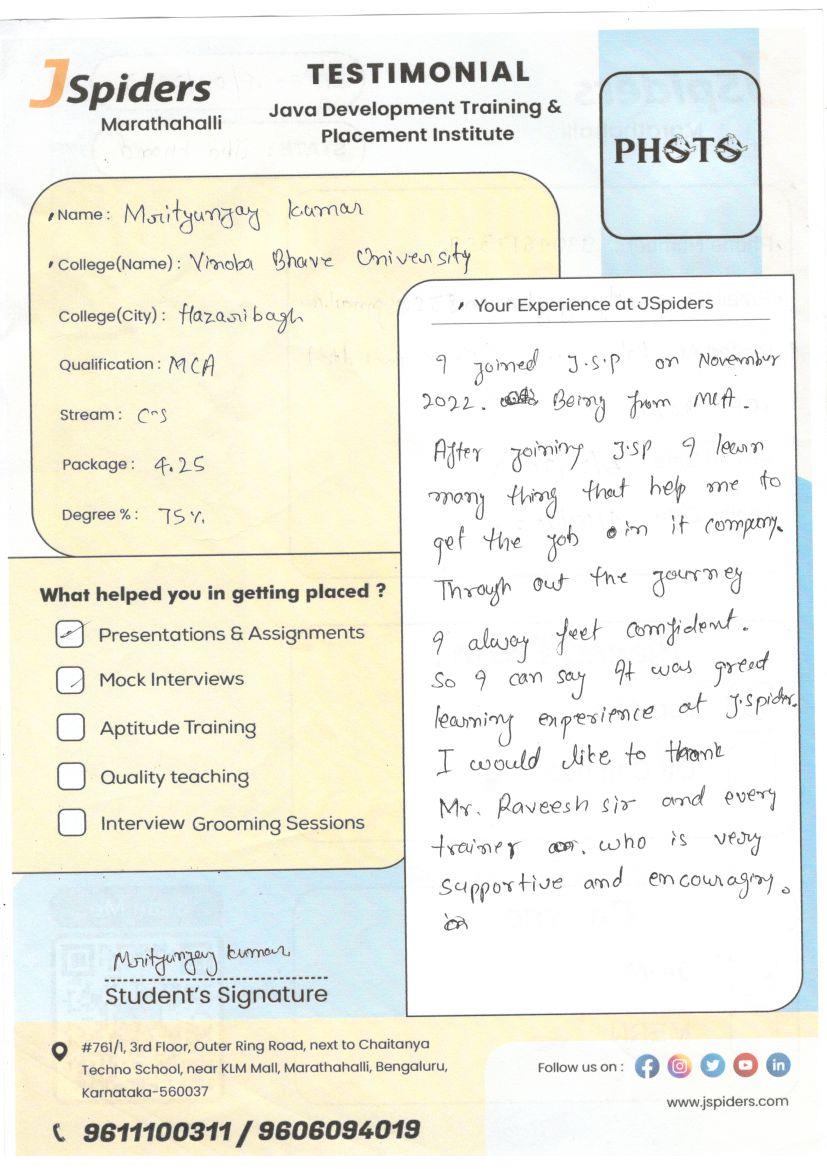 JSpiders
Marathahalli
TESTIMONIAL
Java Development Training &
Placement Institute
PHOTO
Name: Mrityunjay kumar
College(Name): Vinoba Bhave University
College(City): Hazaribagh
Qualification: MCA
Stream: CS
Package: 4.25
Degree %: 75%
What helped you in getting placed ?
Presentations & Assignments
Mock Interviews
Aptitude Training
Quality teaching
Interview Grooming Sessions
Your Experience at JSpiders
I joined J.S.P on November
2022. Being from MCA.
After joining J.SP I learn
many thing that help me to
get the job in it company.
Through out the journey
I alway feel confident.
So I can say It was greed
learning experience at J.spider.
I would like to thank
Mr. Raveesh sir and every
trainer who is very
supportive and encouraging.
Mrityunjay kumar
Student's Signature
#761/1, 3rd Floor, Outer Ring Road, next to Chaitanya
Techno School, near KLM Mall, Marathahalli, Bengaluru,
Karnataka-560037
9611100311 / 9606094019
Follow us on :
www.jspiders.com